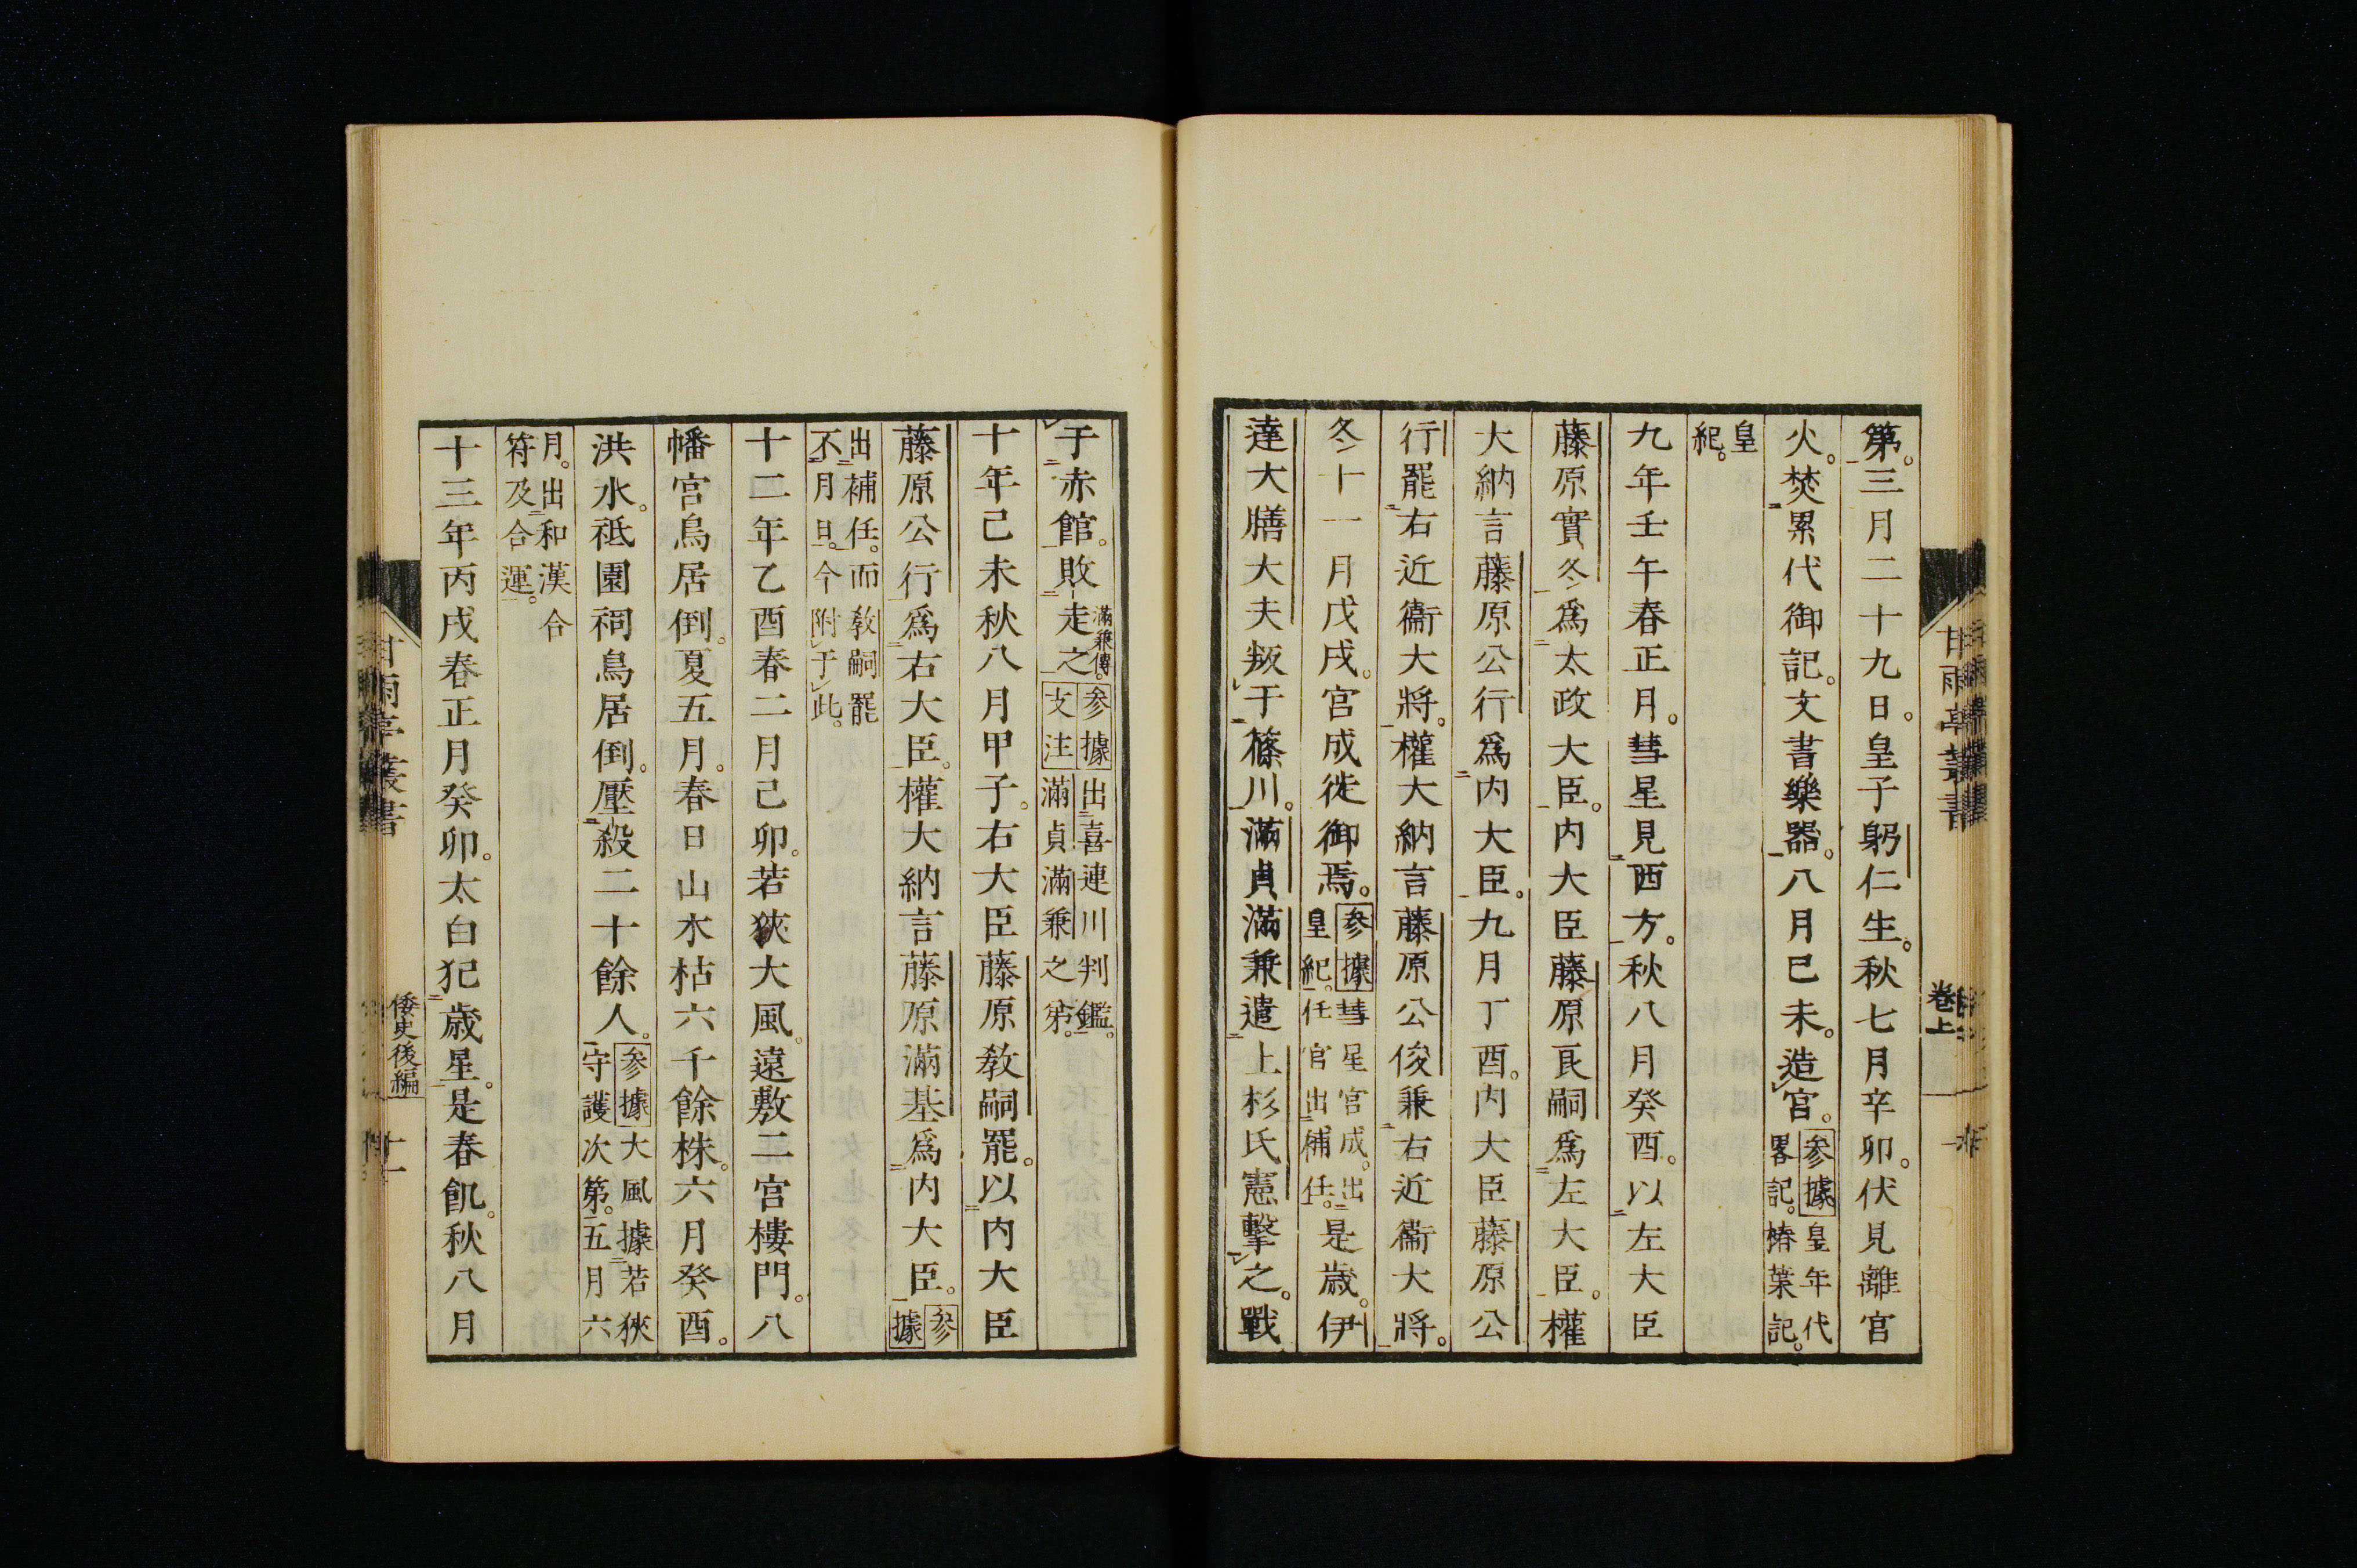 第。三月二十九日。皇子躬仁生。秋七月辛卯。伏見離宮
火。焚累代御記。文書樂器。八月已未。造宮。参據皇年代畧記。椿葉記。
皇紀。
九年壬午春正月。彗星見西方。秋八月癸酉。以左大臣
藤原實冬爲太政大臣。内大臣藤原良嗣爲左大臣。權
大納言藤原公行爲内大臣。九月丁酉。内大臣藤原公
行罷右近衞大將。權大納言藤原公俊兼右近衞大將。
冬十一月戊戌。宮成徙御焉。参據彗星宮成。出皇紀。任官出補任。是歳。伊
達大膳大夫叛于篠川。滿貞滿兼遣上杉氏憲擊之。戰
于赤館。敗走之滿兼傳。参據出喜連川判鑑。支注滿貞滿兼之第。
十年己未秋八月甲子。右大臣藤原敎嗣罷。以内大臣
藤原公行爲右大臣。權大納言藤原滿基爲内大臣。参據
出補任。而敎嗣罷不月日。今附于此。
十二年乙酉春二月己卯。若狹大風。遠敷二宮樓門。八
幡宮鳥居倒。夏五月。春日山木枯六千餘株。六月癸酉。
洪水。祇園祠鳥居倒。壓殺二十餘人。参據大風據若狹守護次第。五月六
月。出和漢合符及合運。
十三年丙戌春正月癸卯。太白犯歳星。是春飢。秋八月
甘雨亭叢書
卷上
甘雨亭叢書
倭史後編
十一